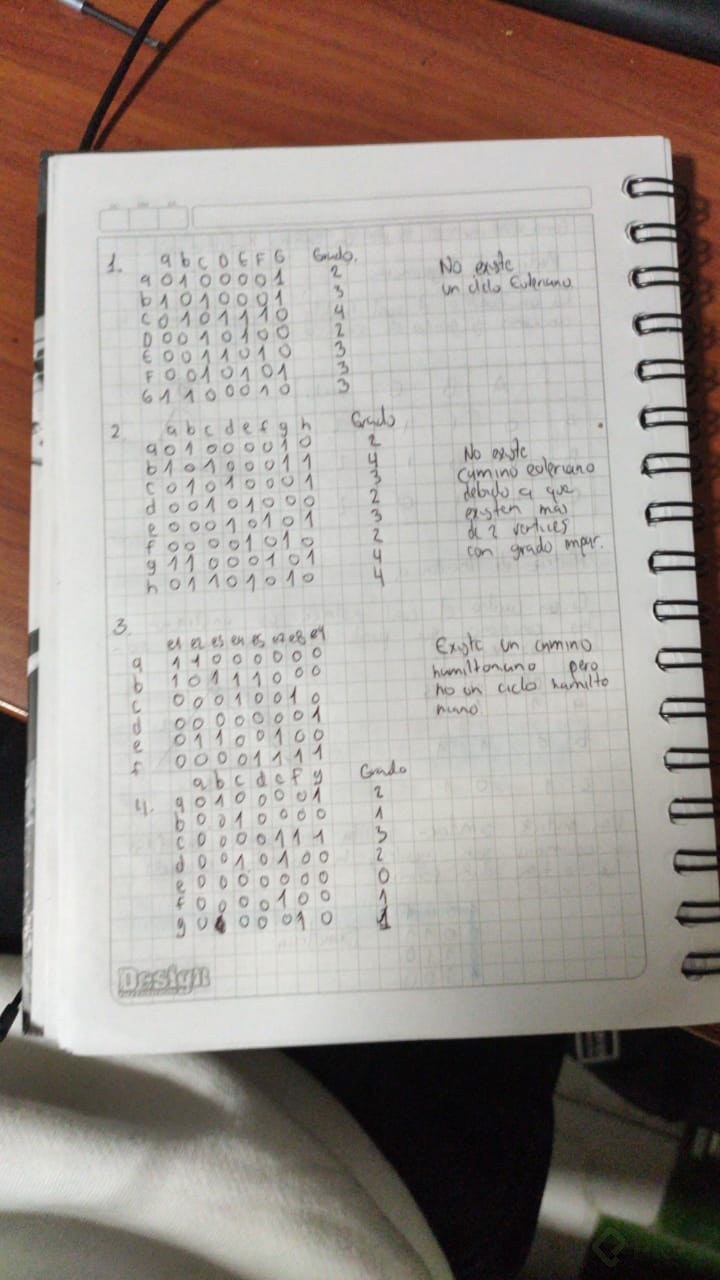 1. a b c D E F G Grado.
a 0 1 0 0 0 0 1 2
b 1 0 1 0 0 0 1 3
c 0 1 0 1 1 1 0 4
D 0 0 1 0 1 0 0 2
E 0 0 1 1 0 1 0 3
F 0 0 1 0 1 0 1 3
G 1 1 0 0 0 1 0 3
No existe
un ciclo Euleriano
2. a b c d e f g h Grado
a 0 1 0 0 0 0 1 0 2
b 1 0 1 0 0 0 1 1 4
c 0 1 0 1 0 0 0 1 3
d 0 0 1 0 1 0 0 0 2
e 0 0 0 1 0 1 0 1 3
f 0 0 0 0 1 0 1 0 2
g 1 1 0 0 0 1 0 1 4
h 0 1 1 0 1 0 1 0 4
No existe
camino euleriano
debido a que
existen mas
de 2 vertices
con grado impar.
3.
e1 e2 e3 e4 e5 e7 e8 e9
a 1 1 0 0 0 0 0 0
b 1 0 1 1 1 0 0 0
c 0 0 0 1 0 0 1 0
d 0 0 0 0 0 0 0 1
e 0 1 1 0 0 1 0 0
f 0 0 0 0 1 1 1 1
Existe un camino
hamiltoniano pero
no un ciclo hamilto
niano
4. a b c d e f g Grado
a 0 1 0 0 0 0 1 2
b 0 0 1 0 0 0 0 1
c 0 0 0 0 1 1 1 3
d 0 0 1 0 1 0 0 2
e 0 0 0 0 0 0 0 0
f 0 0 0 0 1 0 0 1
g 0 0 0 0 1 0 1
Design